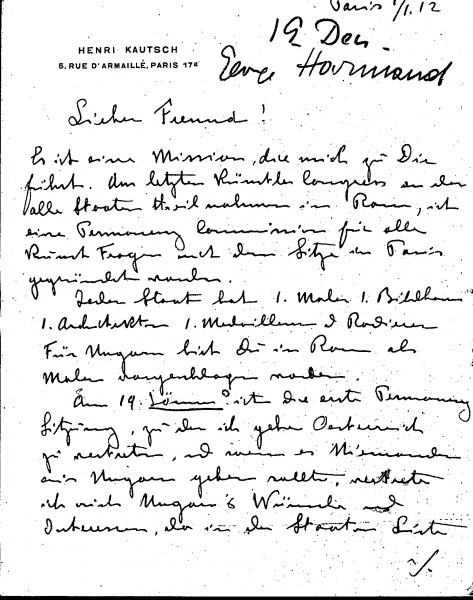 Paris 1/1.12
19 Dec.
George Hourmand
HENRI KAUTSCH
5. RUE D'ARMAILLÉ, PARIS 17E
Lieber Freund!
Es ist eine Mission, die mich zu Dir
führt. Am letzten Künstler Congress an der
alle Staaten theil nahmen in Rom, ist
eine Permanenz Commission für alle
Kunst Fragen mit dem Sitze in Paris
gegründet worden.
Jeder Staat hat 1. Maler 1. Bildhauer
1. Architekten 1. Medailleur & Radierer
Für Ungarn bist Du in Rom als
Maler vorgeschlagen worden.
Am 19. ist die erste Permanenz
Sitzung, zu der ich gehe Oesterreich
zu vertreten, und wenn es Niemanden
aus Ungarn gehen sollte, vertrete
ich auch Ungarn's Wünsche und
Interessen, da in der Staaten Liste